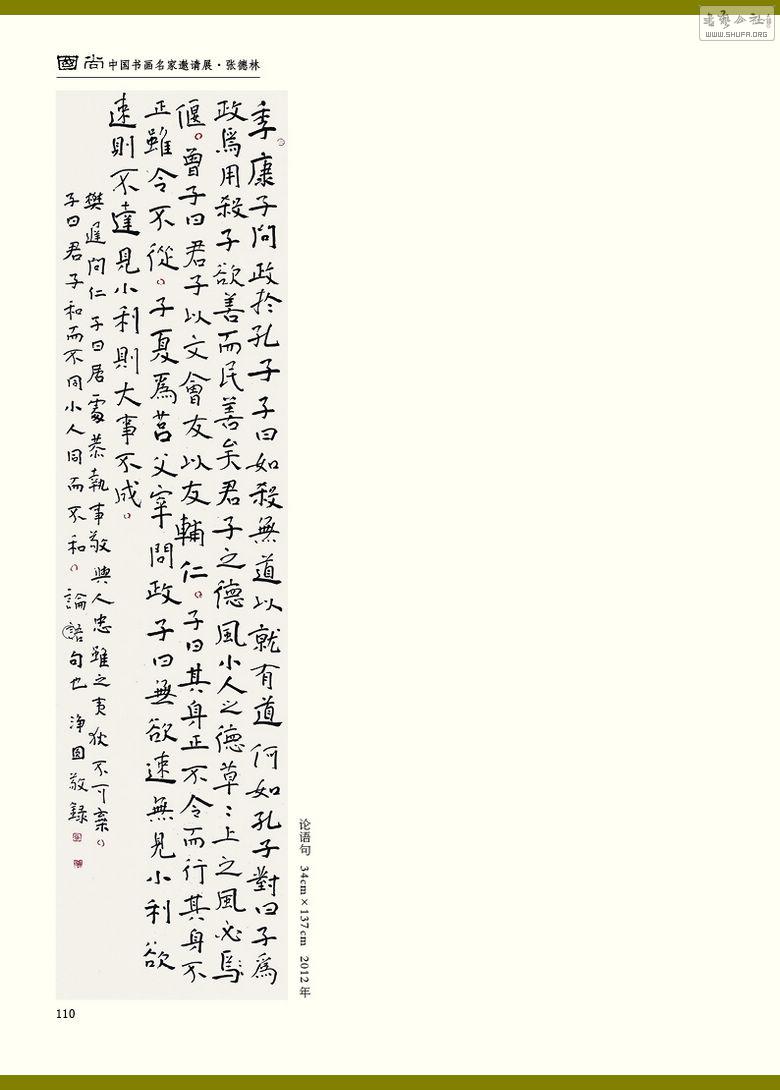 書藝公社
WWW.SHUFA.ORG
國尚 中国书画名家邀请展·张德林
季康子問政於孔子子曰如殺無道以就有道何如孔子對曰子為
政爲用殺子欲善而民善矣君子之德風小人之德草〻上之風必
偃曾子曰君子以文會友以友輔仁子曰其身正不令而行其身不
正雖令不從子夏爲莒父宰問政子曰無欲速無見小利欲
速則不達見小利則大事不成
樊遲問仁子曰居處恭執事敬與人忠雖之夷狄不可棄
子曰君子和而不同小人同而不和論語句也淨敬録
论语句 34cm×137cm 2012年
110